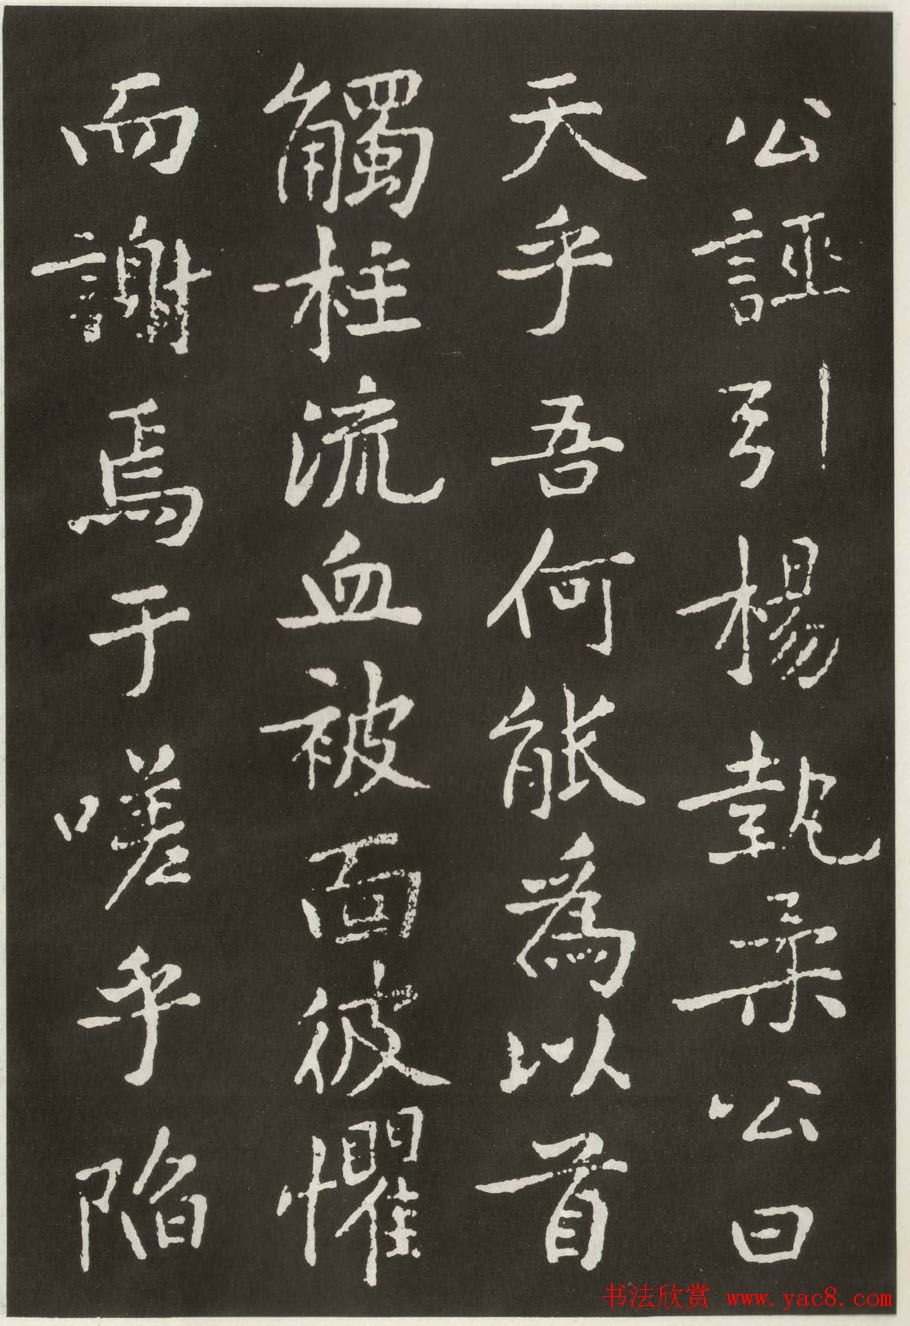 公誣引楊執柔公曰
天乎吾何能為以首
觸柱流血被面彼懼
而謝焉于嗟乎陷
书法欣赏 www.yac8.com